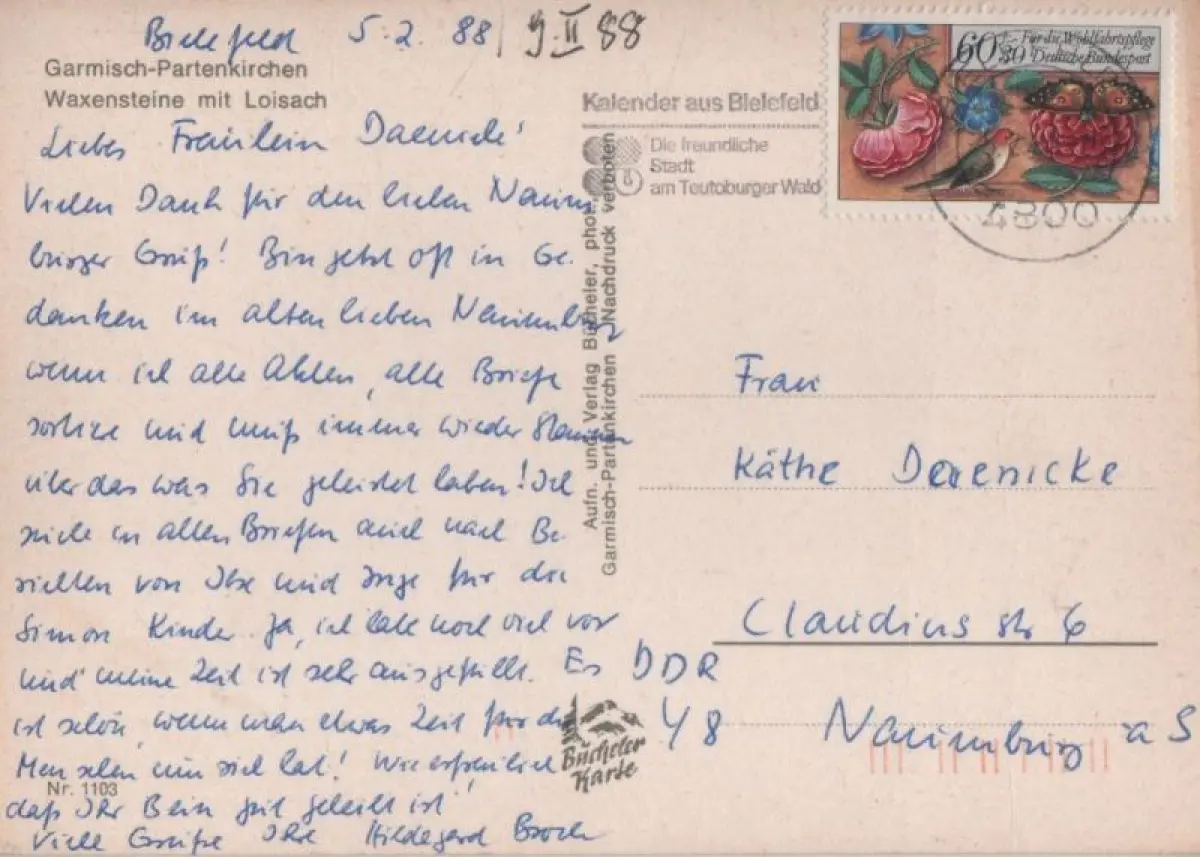 Bielefeld 5.2. 88 / 9.II 88
Garmisch-Partenkirchen
Waxensteine mit Loisach
Liebes Fräulein
Vielen Dank für den lieben Naum
burger Gruß! Bin jetzt oft in Ge-
danken im alten lieben Naumburg
wenn ich alle Akten, alle Briefe
sortiere und muß immer wieder staunen
über das was Sie geleistet haben! Ich
suche in allen Briefen auch nach Be-
richten von Ilse und Inge für die
Simon Kinder. Ja, ich habe noch viel vor
und meine Zeit ist sehr ausgefüllt. Es
ist schön, wenn man etwas Zeit für die
Menschen um sich hat! Wie erfreulich
daß Ihr Bein gut geheilt ist!
Viele Grüße Ihre Hildegard
Nr. 1103
Kalender aus Bielefeld
Die freundliche
Stadt
am Teutoburger Wald
60+30 Für die Wohlfahrtspflege
Deutsche Bundespost
4800
Aufn. und Verlag Bücheler, phot.,
Garmisch-Partenkirchen Nachdruck verboten
Bücheler
Karte
Frau
Käthe Derenicke
Claudiusstr 6
DDR
48 Naumburg a S